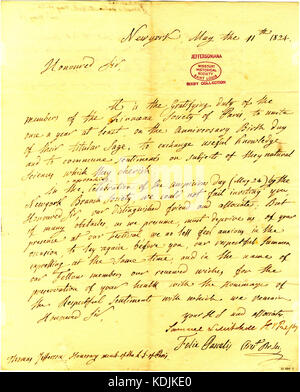 Newyork May the 11th 1824.
JEFFERSONIANA
MISSOURI
HISTORICAL
SOCIETY
SAINT LOUIS
BIXBY COLLECTION
Honoured Sir
It is the Gratifying duty of the
members of the Linnaean Society of Paris, to unite
one a year at least on the Anniversary Birth day
of their titular Sage, to exchange useful Knowledge
and to commune Sentiments on Subjects of the natural
Science which they cherish
In the Celebration of the auspicious day (May 24) by the
Newyork Branch Society we could not fail inviting you
Honored Sir, our distinguished friend and associate. But
if many obstacles, as we presume, must deprive us of your
presence at our festival we so feel anxious in the
occasion, to lay again before you, our respectful
expressing at the same time, and in the name of
our Fellow members our renewed wishes for the
preservation of your health with the hommage of
the Respectful Sentiment with which we remain
Honoured Sir
your
Samuel
Felix Pascalis
Thomas Jefferson Honorary memb of the L.S. of Paris
alamy